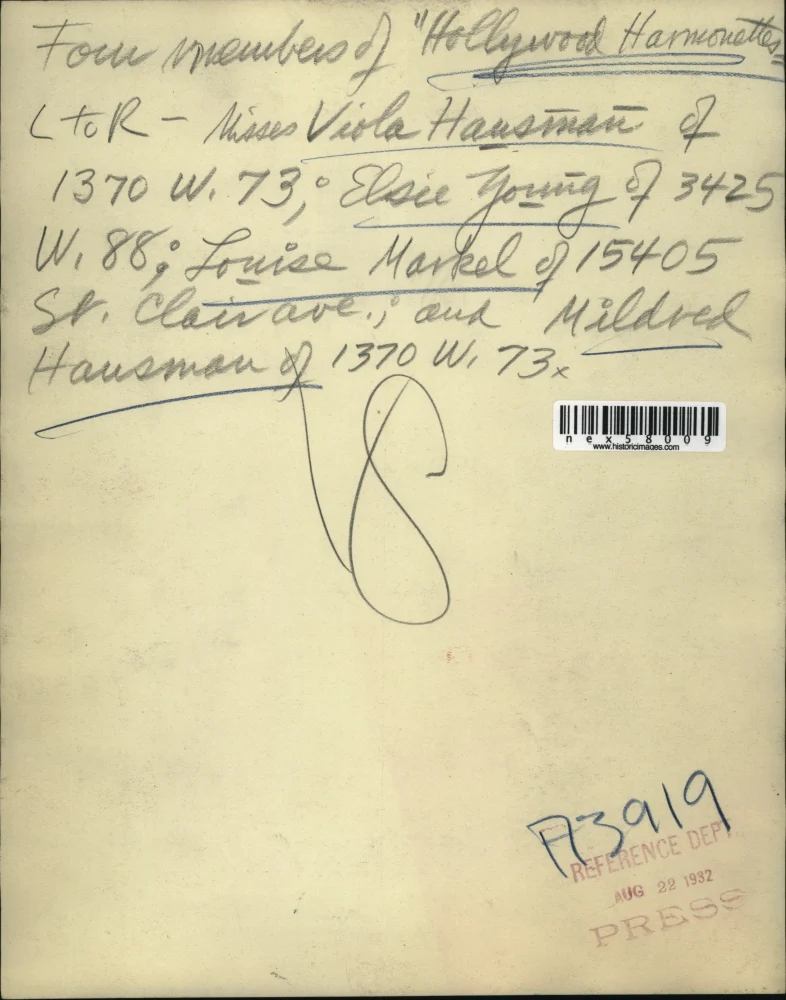 Four members of "Hollywood Harmonettes
L to R - Misses Viola Hausman of
1370 W. 73; Elsie Young of 3425
W. 88; Louise Markel of 15405
St. Clair ave.; and Mildred
Hausman of 1370 W. 73x
nex58009
www.historicimages.com
A3919
REFERENCE DEPT.
AUG 22 1932
PRESS